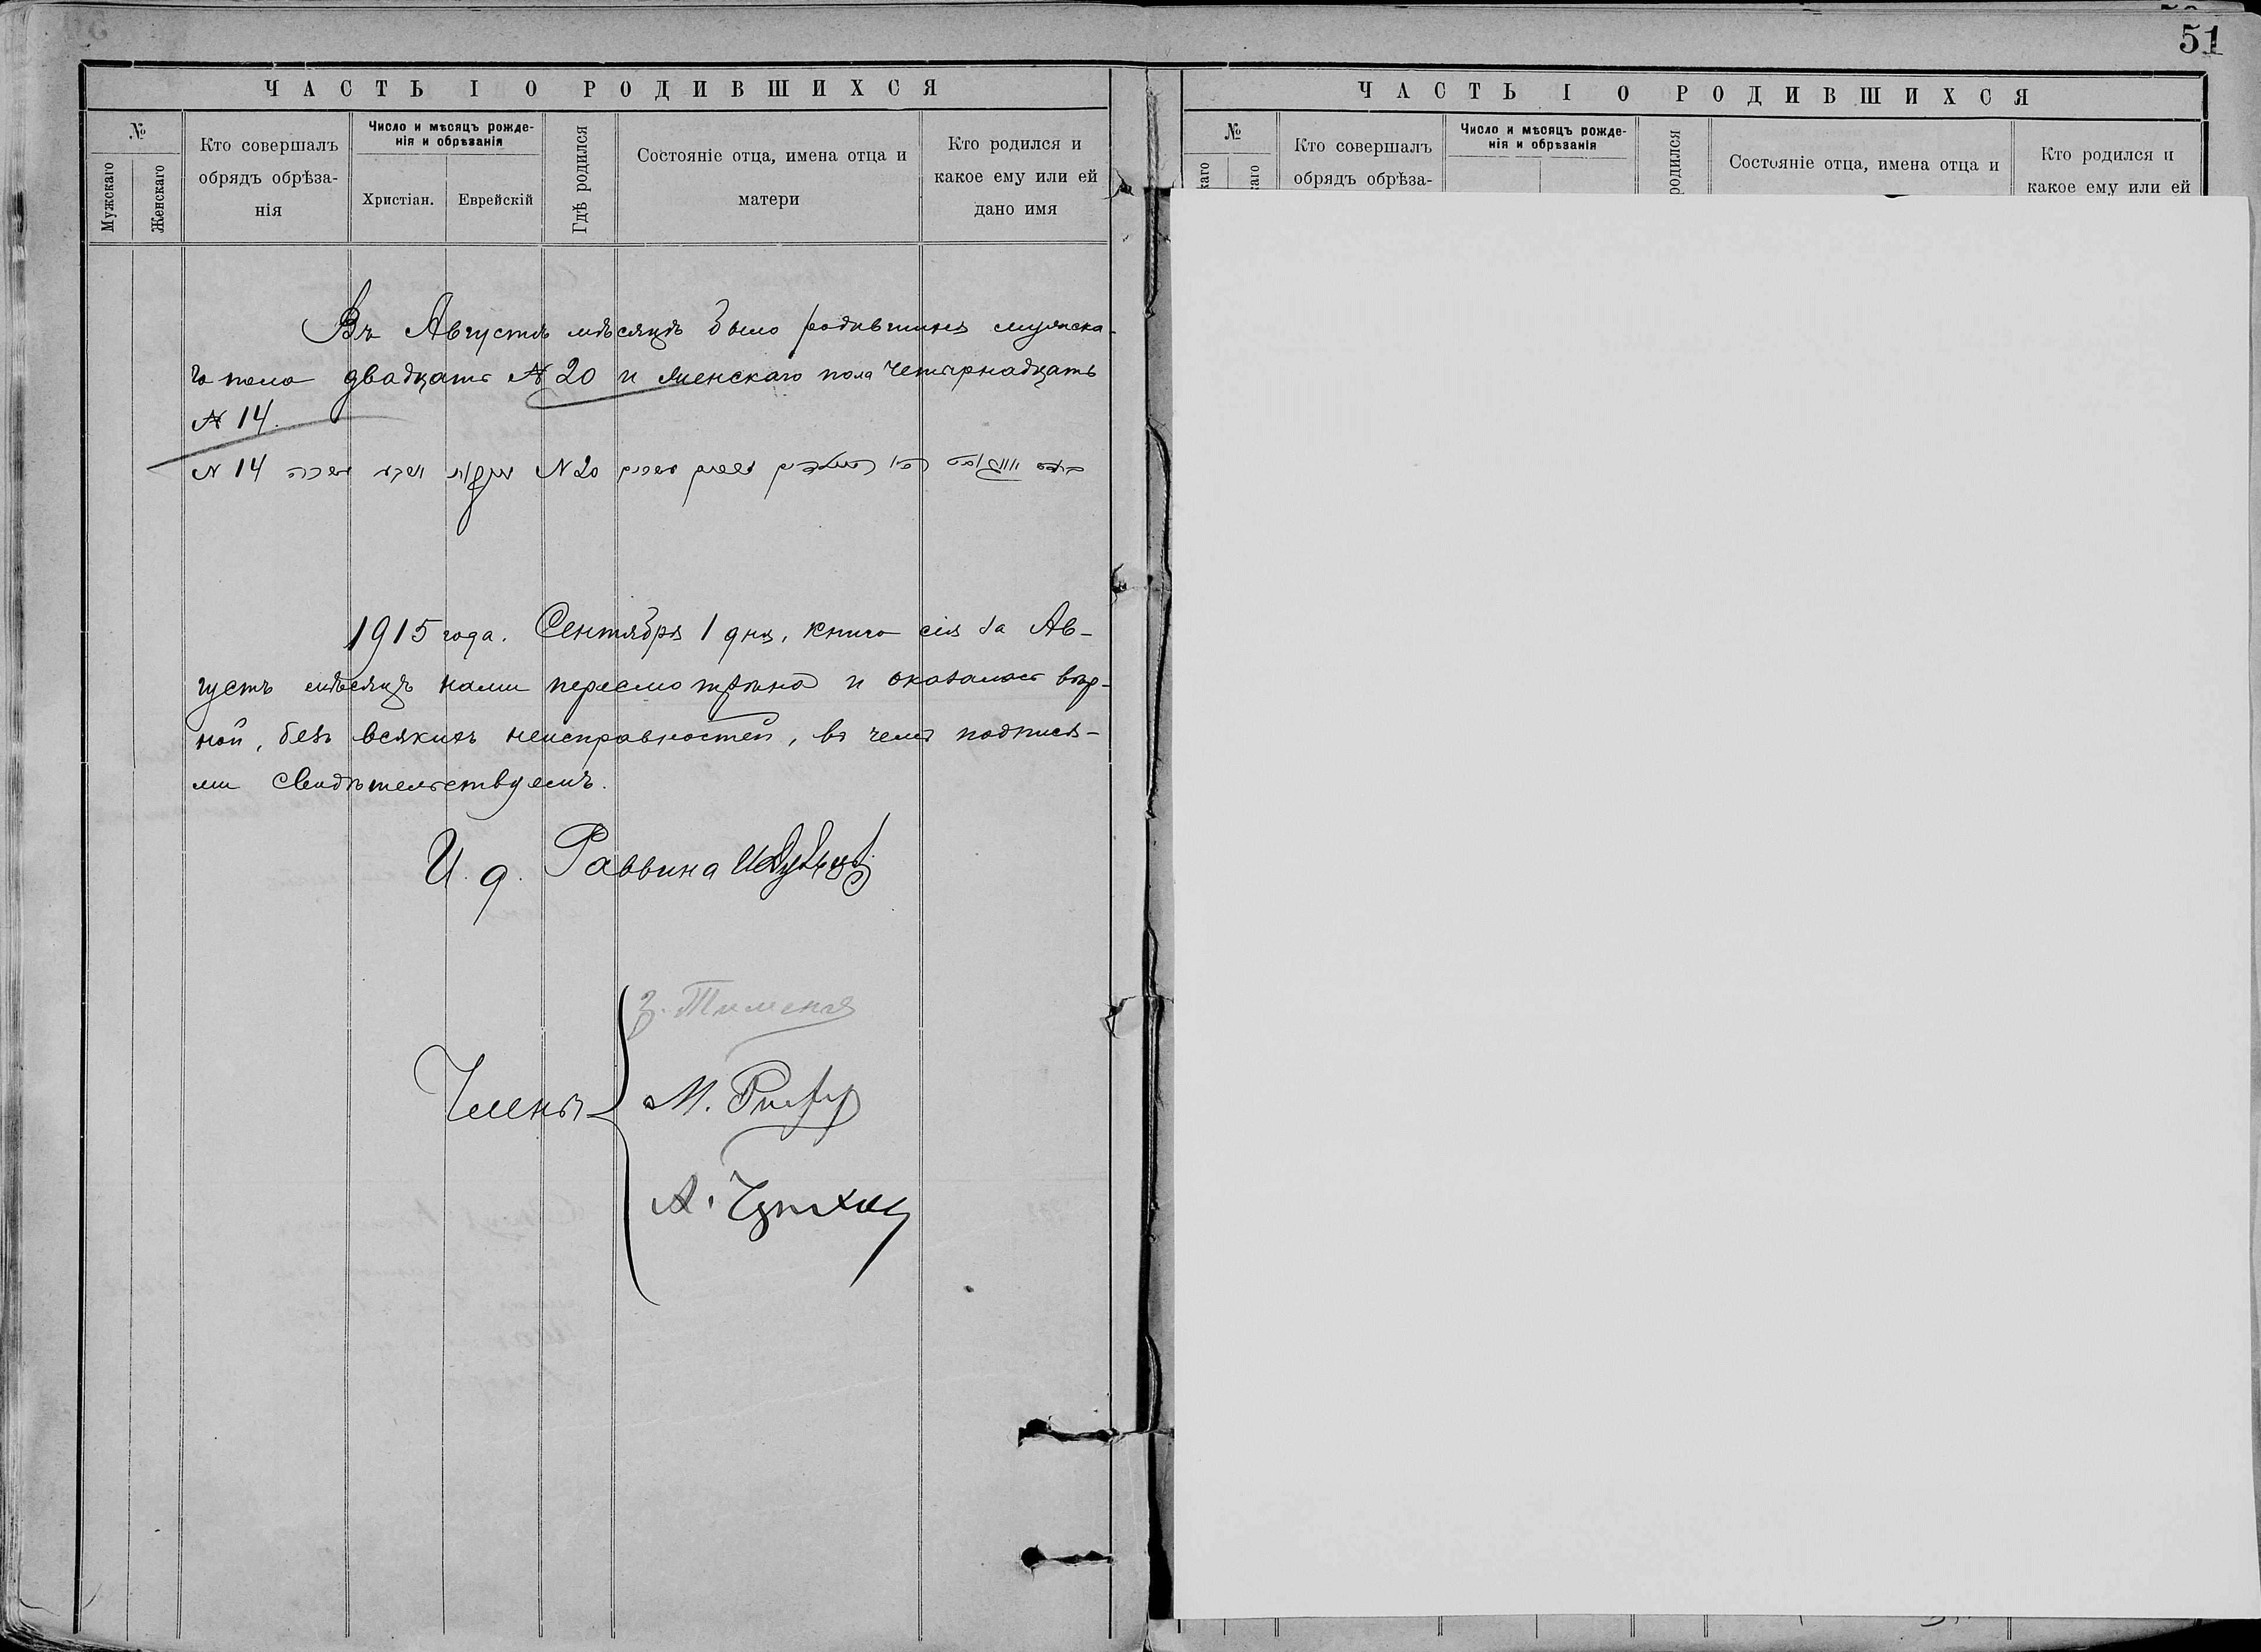 51
ЧАСТЬ I О РОДИВШИХСЯ
№
Мужскаго
Женскаго
Кто совершалъ
обрядъ обрѣза-
нія
Число и мѣсяцъ рожде-
нія и обрѣзанія
Христіан.
Еврейскій
Гдѣ родился
Состояніе отца, имена отца и
матери
Кто родился и
какое ему или ей
дано имя
Въ Августѣ мѣсяцѣ было родившихся мужска-
го пола двадцать № 20 и женскаго пола четырнадцать
№ 14.
N 20 N 14
1915 года. Сентября 1 дня, книга сія за Ав-
густъ мѣсяцъ нами пересмотрѣна и оказалась вѣр-
ной, безъ всякихъ неисправностей, въ чемъ подпися-
ми свидѣтельствуемъ.
И. д. Раввина
Члены
М.
А.
ЧАСТЬ I О РОДИВШИХСЯ
№
каго
каго
Кто совершалъ
обрядъ обрѣза-
Число и мѣсяцъ рожде-
нія и обрѣзанія
родился
Состояніе отца, имена отца и
Кто родился и
какое ему или ей